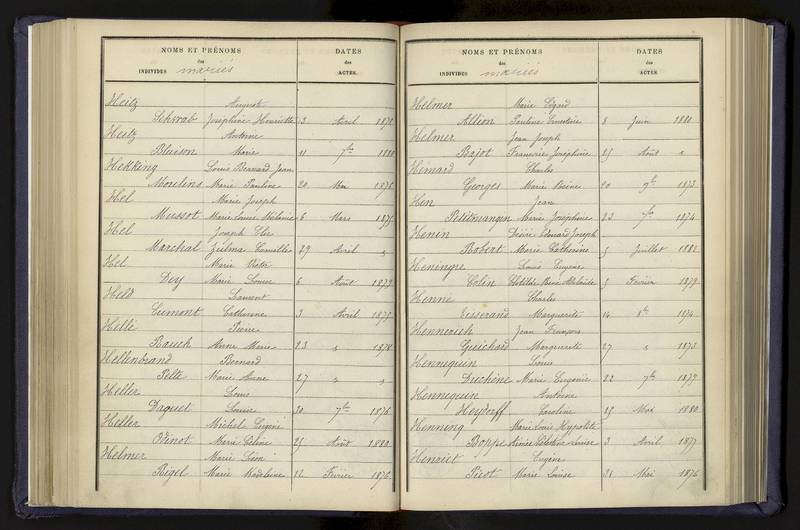 NOMS ET PRÉNOMS DATES
des des
INDIVIDUS mariés ACTES
Heitz August
Schwab Joséphine Henriette 13 Avril 1878
Heitz Antoine
Blaison Marie 11 7bre 1880
Hekking Louis Bernard Jean
Moulins Marie Pauline 20 Mai 1876
Hel Marie Joseph
Mussot Marie Louise Mélanie 6 Mars 1875
Hel Joseph Elie
Marchal Zulma Camille 29 Avril "
Hel Marie Victor
Dey Marie Louise 6 Août 1879
Held Laurent
Cumont Catherine 3 Avril 1875
Hélle Pierre
Bauch Anne Marie 23 " 1878
Hellenbrand Bernard
Pelte Marie Anne 27 " "
Heller Louis
Daguet Louise 30 7bre 1876
Heller Michel Eugène
Piénot Marie Céline 25 Août 1882
Helmer Marie Léon
Rigel Marie Madeleine 12 Février 1876
NOMS ET PRÉNOMS DATES
des des
INDIVIDUS mariés ACTES
Helmer Marie
Allion Pauline Ernestine 8 Juin 1880
Helmer Jean Joseph
Bajot Françoise Joséphine 25 Août "
Hémard Charles
Georges Marie 20 9bre 1873
Hen Jean
Petitmangin Marie Joséphine 23 7bre 1874
Henin Désiré Edouard Joseph
Robert Marie Catherine 5 Juillet 1882
Heningre Louis Eugène
Colin Clotilde Adélaïde 5 Février 1879
Henne Charles
Tisserand Marguerite 14 8bre 1874
Henneaush Jean François
Guichard Marguerite 27 " 1873
Hennequin Louis
Duchêne Marie Eugénie 22 7bre 1879
Hennequin Antoine
Heydorff Caroline 25 Mai 1880
Henning Marie Louis Hypolite
Boppe Aimée Célestine Louise 3 Avril 1877
Henriet Eugène
Picot Marie Louise 31 Mai 1876